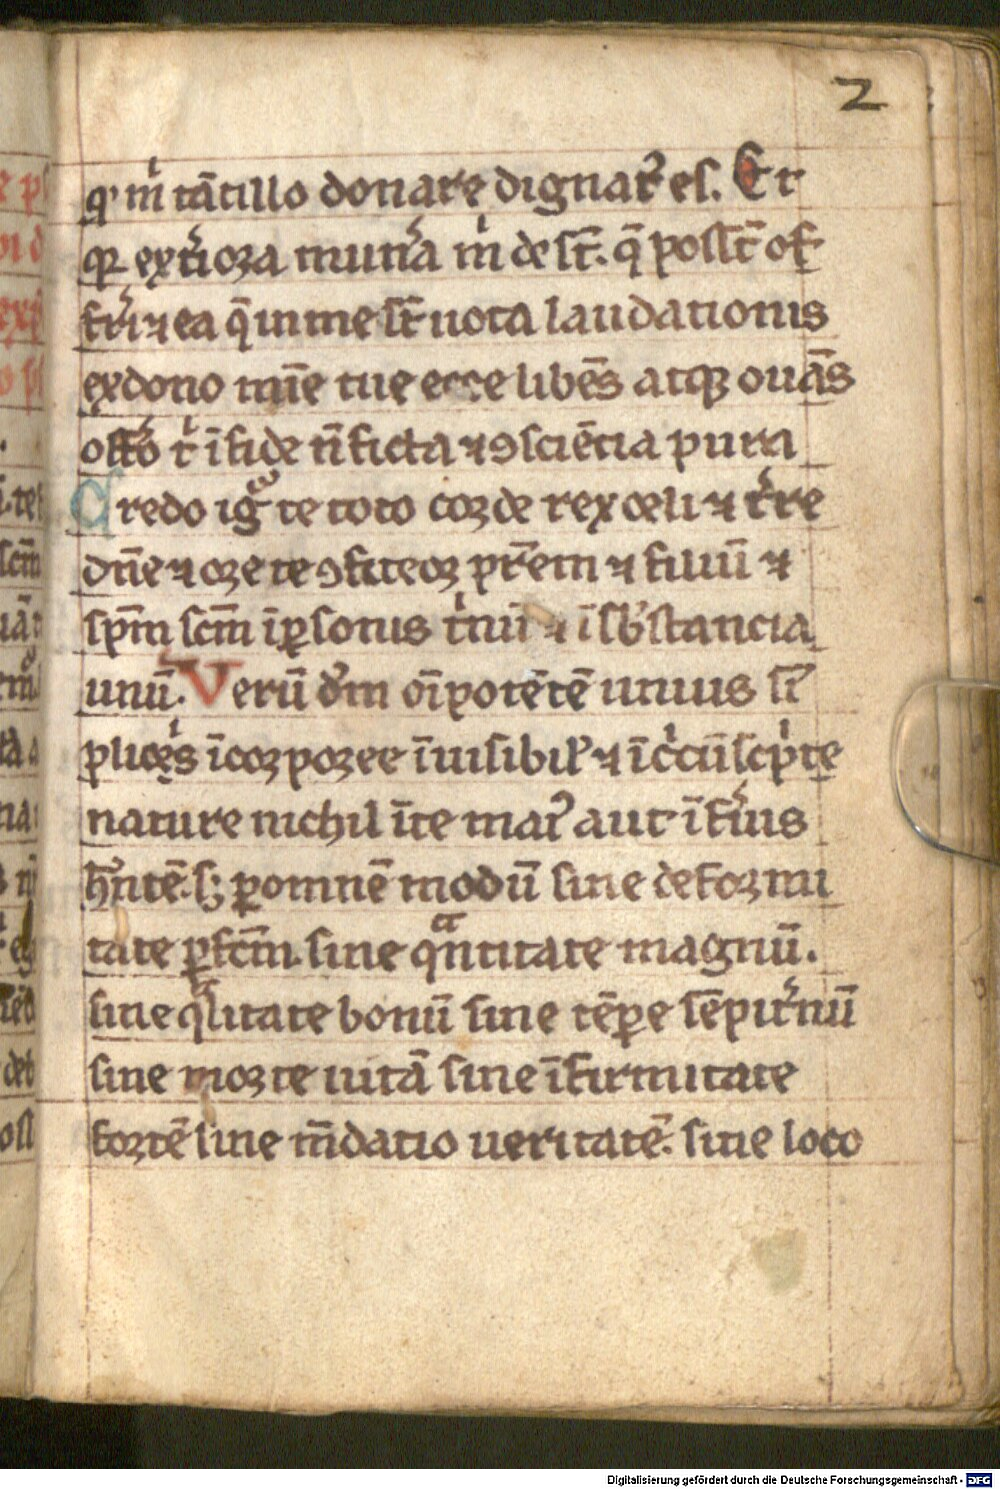 2
qͥ m̅ tātillo donare dignatꝰ es. Et
qꝛ exͭioꝛa munͬa mͥ deſt̄. q̄ poſſt̄ of
fͬri ⁊ ea q̄ in me ſt̄ uota laudationis
ex dono mīe tue ecce libēs atqꝫ ouās
offͬo tͥ ī fide n̄ ficta ⁊ ꝯſciētia pura
Credo igͬ te toto coꝛde rex celi ⁊ tͬre
dn̄e ⁊ oꝛe te ꝯfiteoꝛ pr̄em ⁊ filiū ⁊
ſpm̄ ſcm̄ ī ꝑſonis tͥnū ⁊ ī ſb̓ſtancia
unū. Verū dm̄ oīpotētē uniuſ ſī
plicͥs īcoꝛpoꝛee īuiſibil̓ ⁊ īcͥcūſcͥpte
nature nichil ī te maiꝰ aut īfͬius
hn̄tē. ſꝫ ꝑ omnē modū ſine defoꝛmi
tate ꝑfcm̄. ſine qͣntitate magnū.
ſine qͣlitate bonū ſine tēꝑe ſēpitͬnū
ſine moꝛte uitā ſine īfirmitate
foꝛtē ſine m̄datio ueritatē. ſine loco
Digitalisierung gefördert durch die Deutsche Forschungsgemeinschaft - DFG